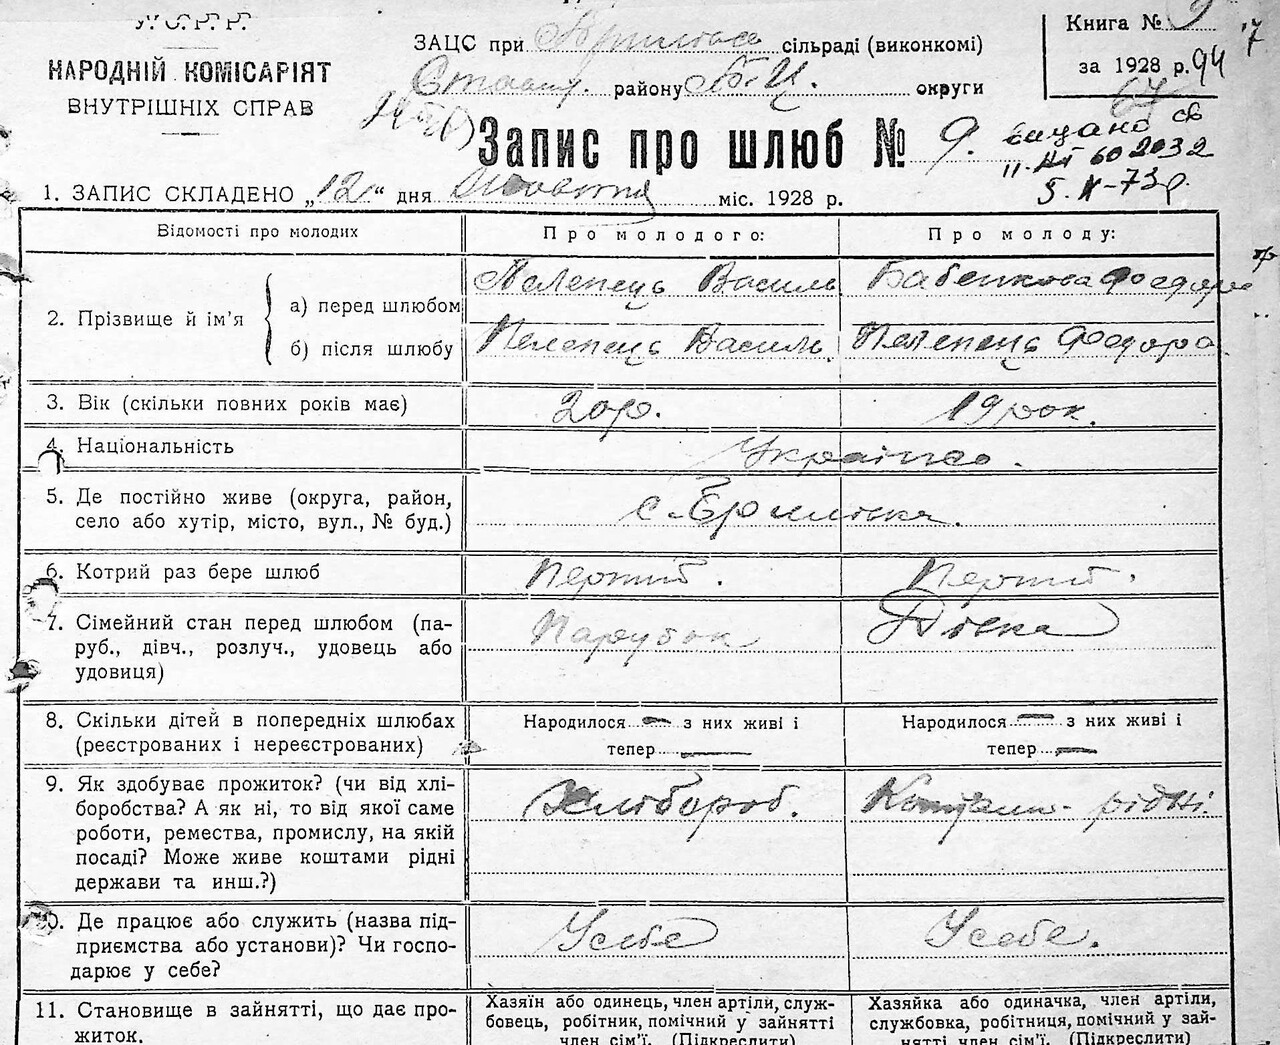 У. С. Р. Р.
НАРОДНІЙ КОМІСАРІЯТ
ВНУТРІШНІХ СПРАВ
ЗАЦС при сільраді (виконкомі)
району Б-Ц. округи
Книга № 9
за 1928 р. 94
67
Запис про шлюб № 9.
видано св
II-КГ 602032
5.X-73р.
1. ЗАПИС СКЛАДЕНО „12" дня Жовтня міс. 1928 р.
Відомості про молодих
Про молодого:
Про молоду:
2. Прізвище й ім'я
а) перед шлюбом
Пелепець Василь
Бабенкова Федора
б) після шлюбу
Пелепець Василь.
Пелепець Федора.
3. Вік (скільки повних років має)
20 р.
19 рок.
4. Національність
Українсв.
5. Де постійно живе (округа, район,
село або хутір, місто, вул., № буд.)
с.
6. Котрий раз бере шлюб
Перший.
Перший.
7. Сімейний стан перед шлюбом (па-
руб., дівч., розлуч., удовець або
удовиця)
Парубок
Дівка
8. Скільки дітей в попередніх шлюбах
(реєстрованих і нереєстрованих)
Народилося — з них живі і
тепер —
Народилося — з них живі і
тепер —
9. Як здобуває прожиток? (чи від хлі-
боробства? А як ні, то від якої саме
роботи, ремества, промислу, на якій
посаді? Може живе коштами рідні
держави та инш.?)
Хлібороб.
Коштами рідні
10. Де працює або служить (назва під-
приємства або установи)? Чи госпо-
дарює у себе?
У себе
У себе.
11. Становище в зайнятті, що дає про-
житок.
Хазяїн або одинець, член артіли, служ-
бовець, робітник, помічний у зайнятті
член сім'ї. (Підкреслити)
Хазяйка або одиначка, член артіли,
службовка, робітниця, помічний у зай-
нятті член сім'ї. (Підкреслити)